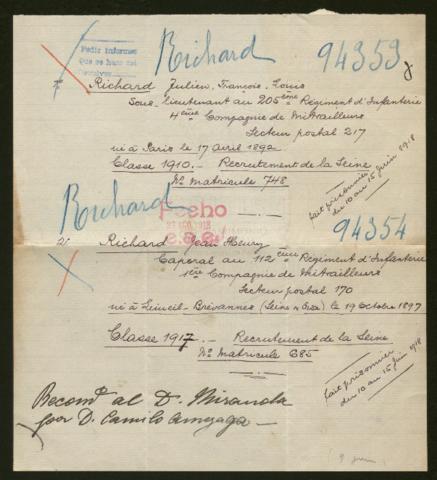 Pedir informes
Que se haga así
Richard
94353
1/ Richard Julien, François, Louis
Sous-lieutenant au 205ème Régiment d'Infanterie
4ème Compagnie de Mitrailleurs
Secteur postal 217
né à Paris le 17 avril 1892
Classe 1910.- Recrutement de la Seine
No matricule 748
fait prisonnier
du 10 au 15 juin 1918
Richard
pecho
1918
94354
2/ Richard Jean Henry
Caporal au 112ème Régiment d'Infanterie
1ère Compagnie de Mitrailleurs
Secteur postal 170
né à Limeil-Brévannes (Seine et Oise) le 19 Octobre 1897
Classe 1917.- Recrutement de la Seine
No matricule 685
fait prisonnier
du 10 au 15 juin 1918
Recomdo al D. Miranda
por D. Camilo Amezaga
9 juin